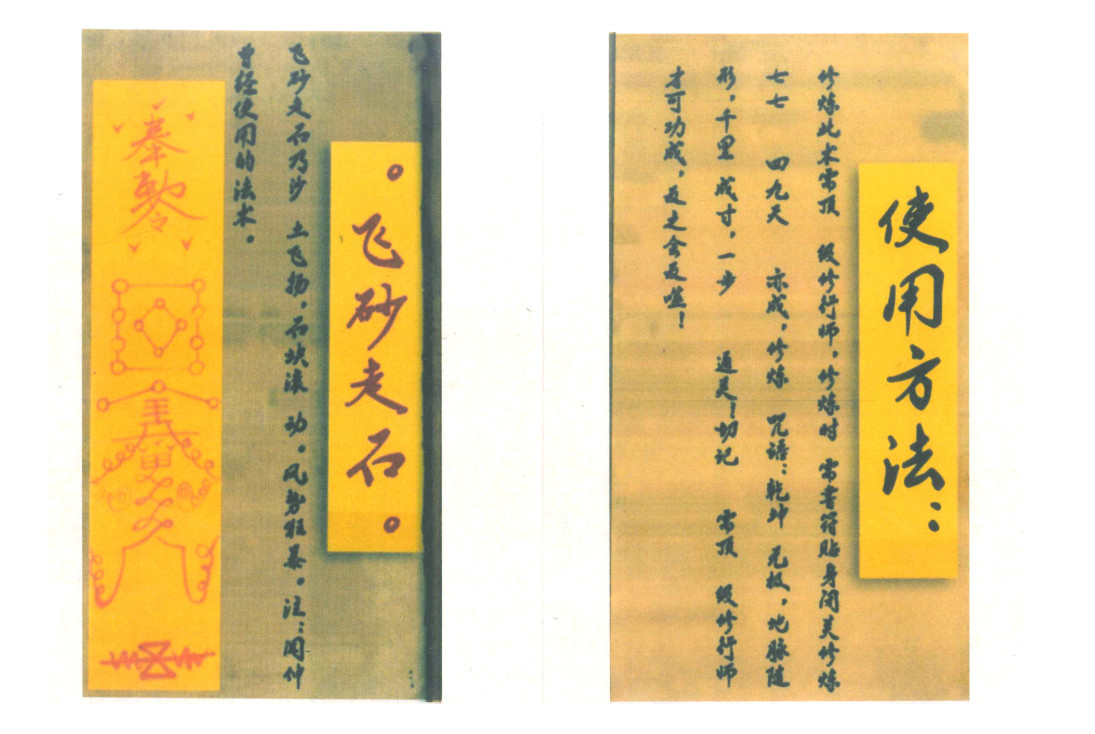 。飞砂走石。
飞砂走石乃沙 土飞扬，石块滚 动。风势狂暴。注：闻仲
曾经使用的法术。
奉
使用方法：
修炼此术需顶 级修行师，修炼时 需书符贴身闭关修炼
七七 四九天 亦成，修炼 咒语：乾坤 无极，地脉随
形，千里 成寸，一步 通灵！切记 需顶 级修行师
才可功成，反之会反噬！